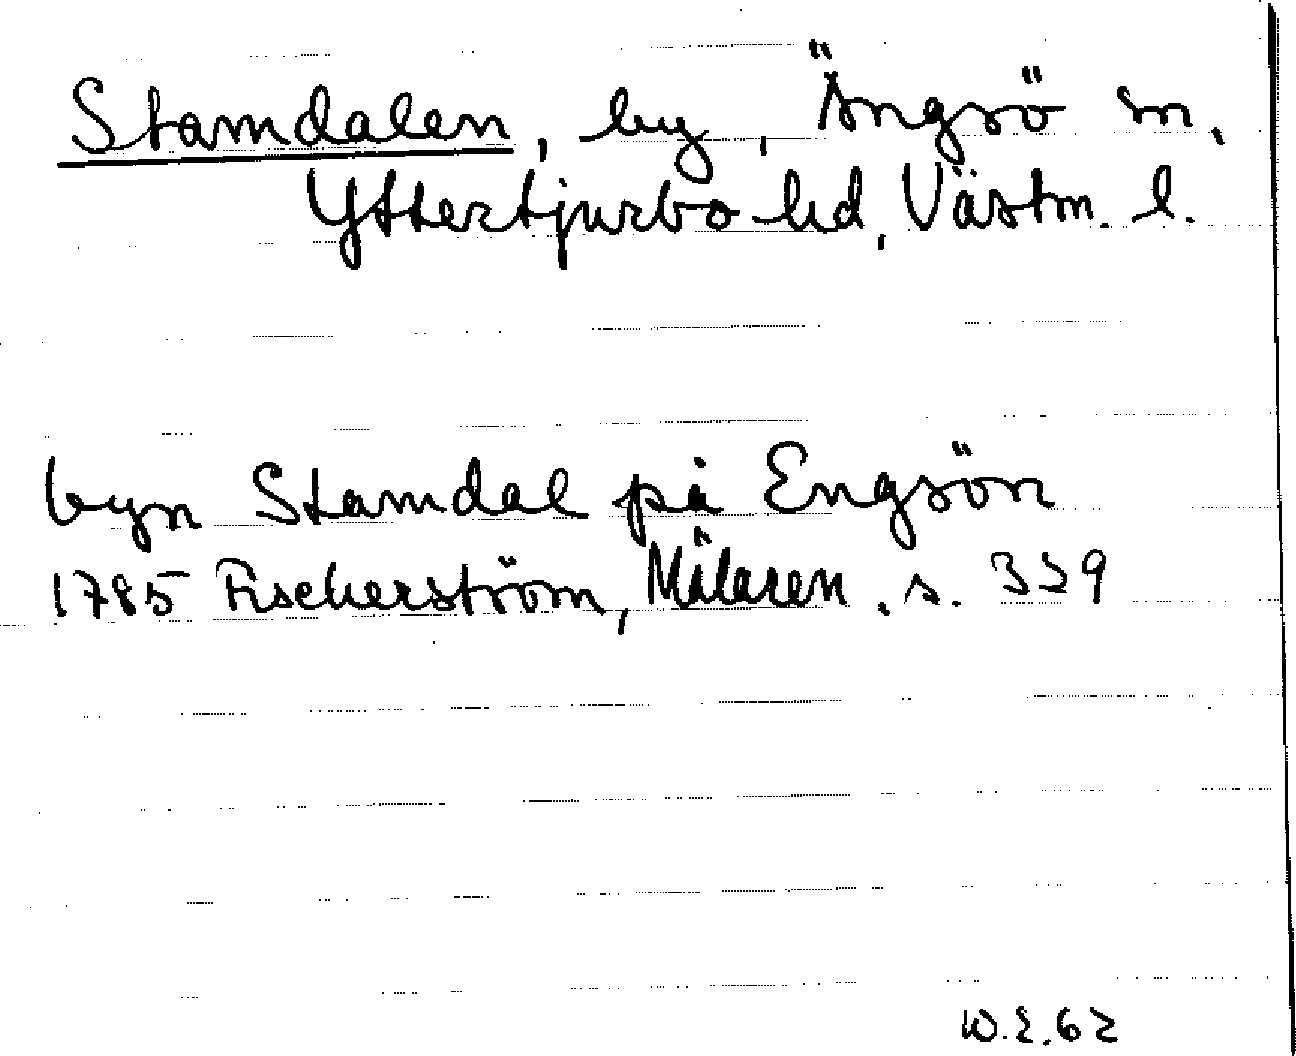 Stamdalen, by, Ängsö sn,
Yttertjurbo hd, Västm. l.
byn Stamdal på Engsön
1785 Fischerström, Mälaren, s. 339
W.E.62